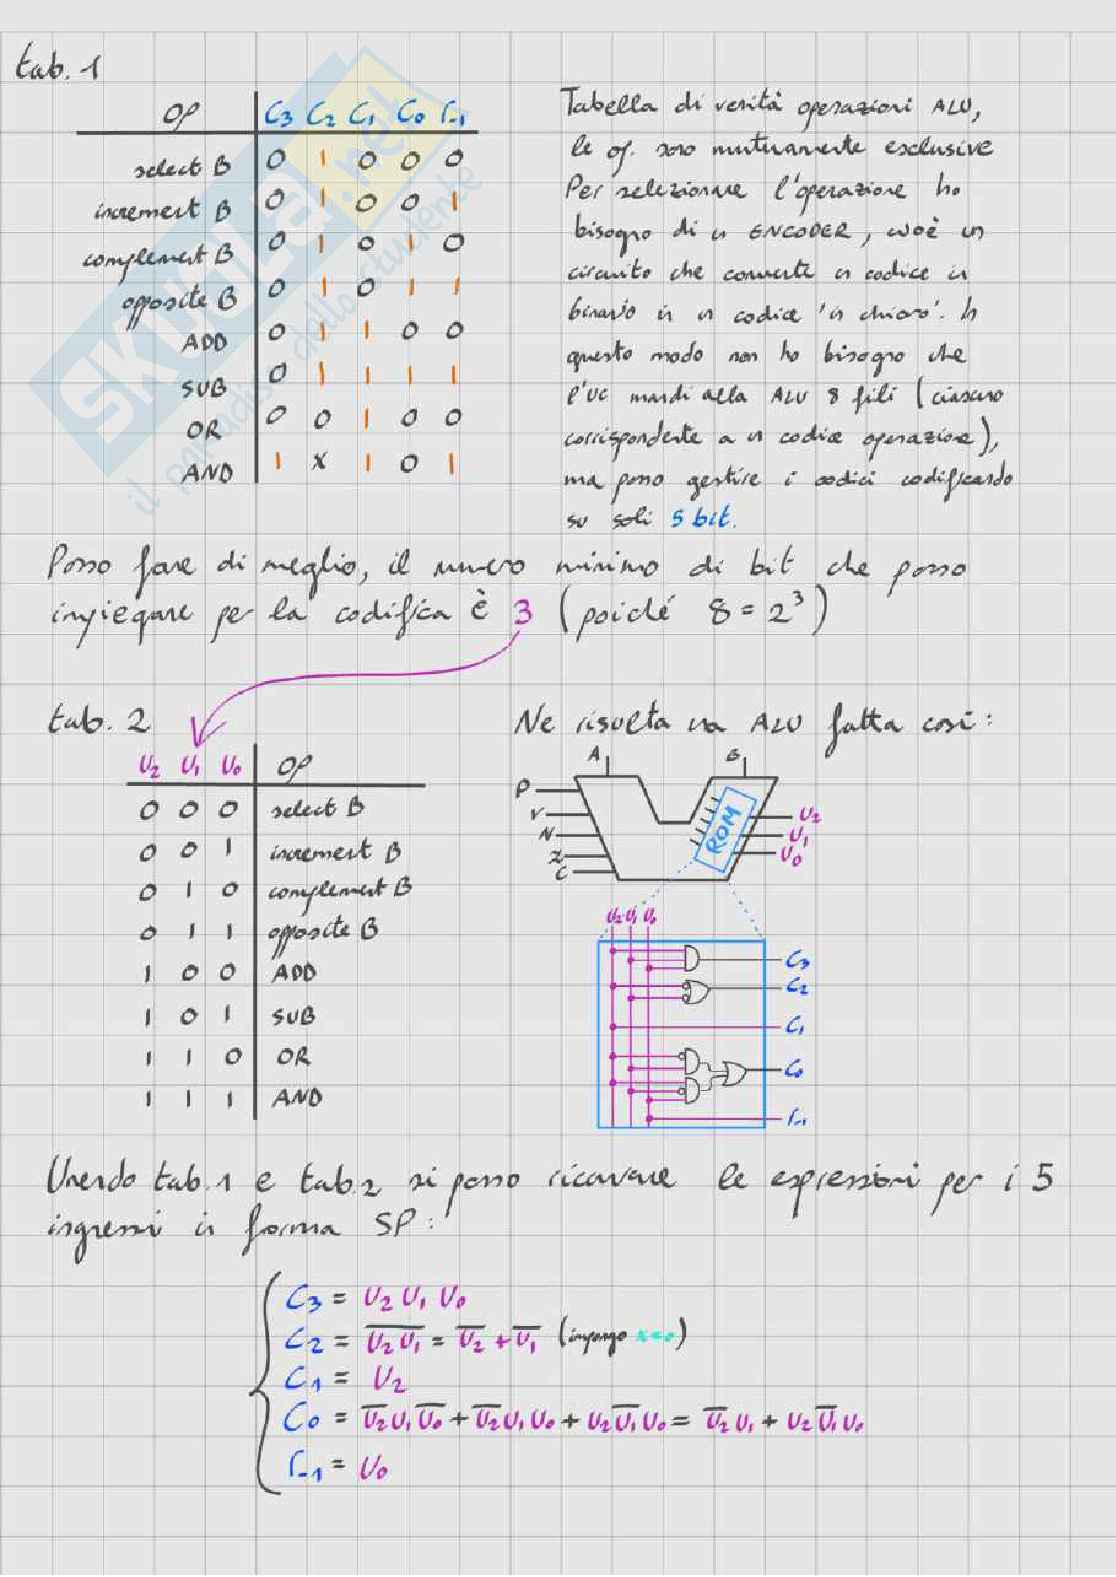 tab. 1
OP C3 C2 C1 C0 r-1
select B 0 1 0 0 0
increment B 0 1 0 0 1
complement B 0 1 0 1 0
opposite B 0 1 0 1 1
ADD 0 1 1 0 0
SUB 0 1 1 1 1
OR 0 0 1 0 0
AND 1 x 1 0 1
Tabella di verità operazioni ALU,
le op. sono mutuamente esclusive
Per selezionare l'operazione ho
bisogno di un ENCODER, cioè un
circuito che converte un codice in
binario in un codice 'in chiaro'. In
questo modo non ho bisogno che
l'UC mandi alla ALU 8 fili (ciascuno
corrispondente a un codice operazione),
ma posso gestire i codici codificando
su soli 5 bit.
SKUOLA.net
il paradiso dello studente
Posso fare di meglio, il numero minimo di bit che posso
impiegare per la codifica è 3 (poiché 8 = 2³)
tab. 2
U2 U1 U0 OP
0 0 0 select B
0 0 1 increment B
0 1 0 complement B
0 1 1 opposite B
1 0 0 ADD
1 0 1 SUB
1 1 0 OR
1 1 1 AND
Ne risulta una ALU fatta così:
A B
P
V
N
Z
C
ROM
U2
U1
U0
U2 U1 U0
C3
C2
C1
C0
r-1
Unendo tab.1 e tab.2 si posso ricavare le espressioni per i 5
ingressi in forma SP:
C3 = U2 U1 U0
C2 = \overline{U2 U1} = \overline{U2} + \overline{U1} (impongo x=0)
C1 = U2
C0 = \overline{U2} U1 \overline{U0} + \overline{U2} U1 U0 + U2 \overline{U1} U0 = \overline{U2} U1 + U2 \overline{U1} U0
r-1 = U0